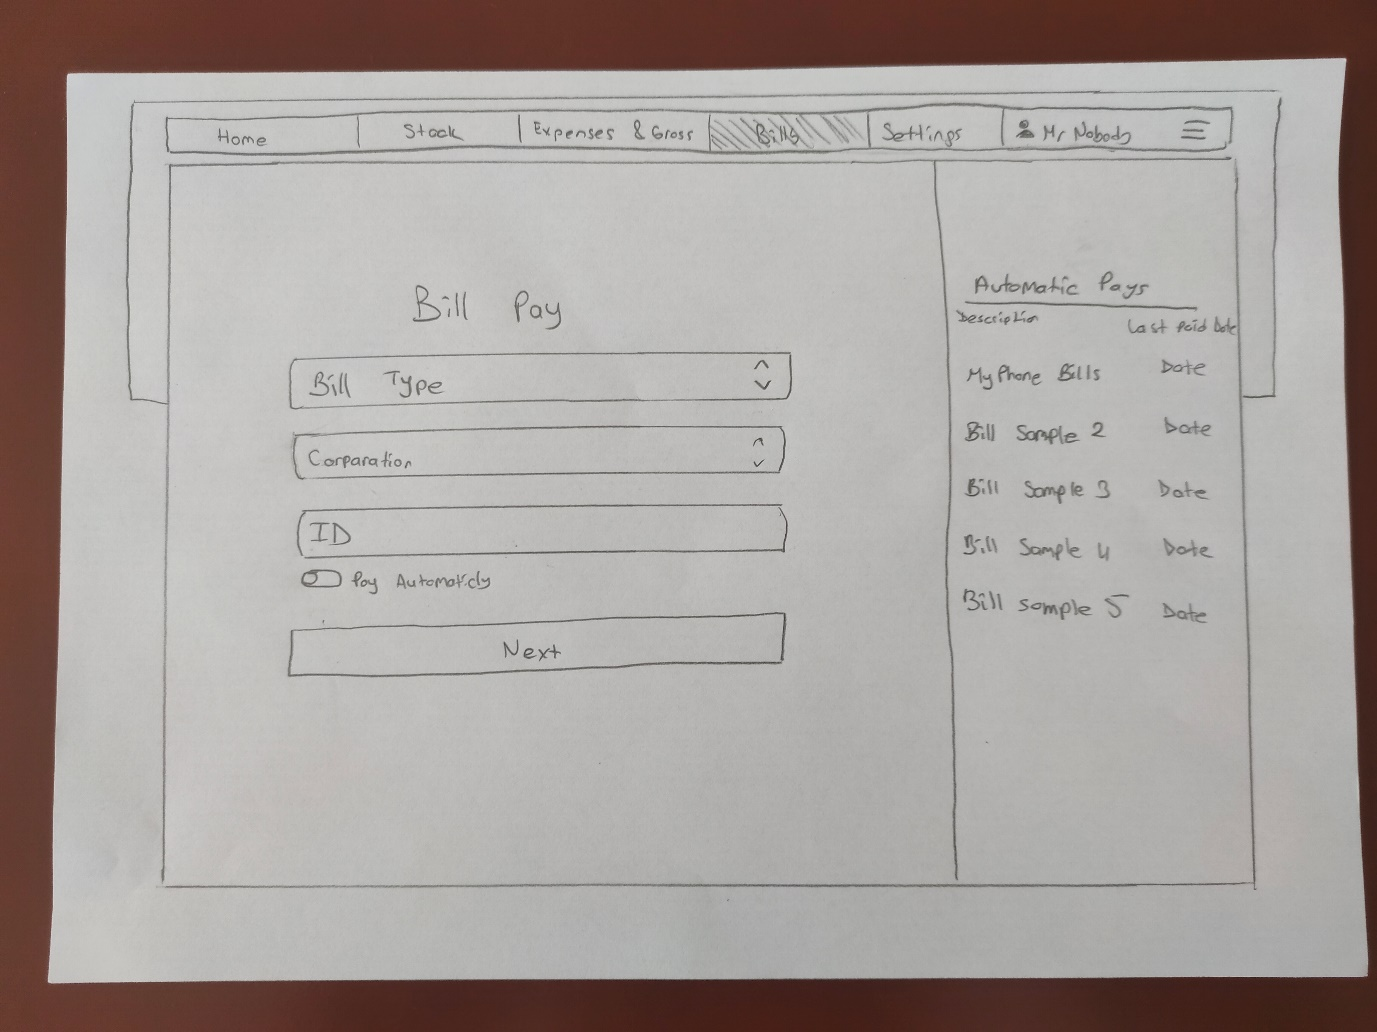 Home Stock Expenses & Gross Bills Settings Mr Nobody
Bill Pay
Bill Type
Corparation
ID
Pay Automaticly
Next
Automatic Pays
Description Last Paid Date
My Phone Bills Date
Bill Sample 2 Date
Bill Sample 3 Date
Bill Sample 4 Date
Bill Sample 5 Date